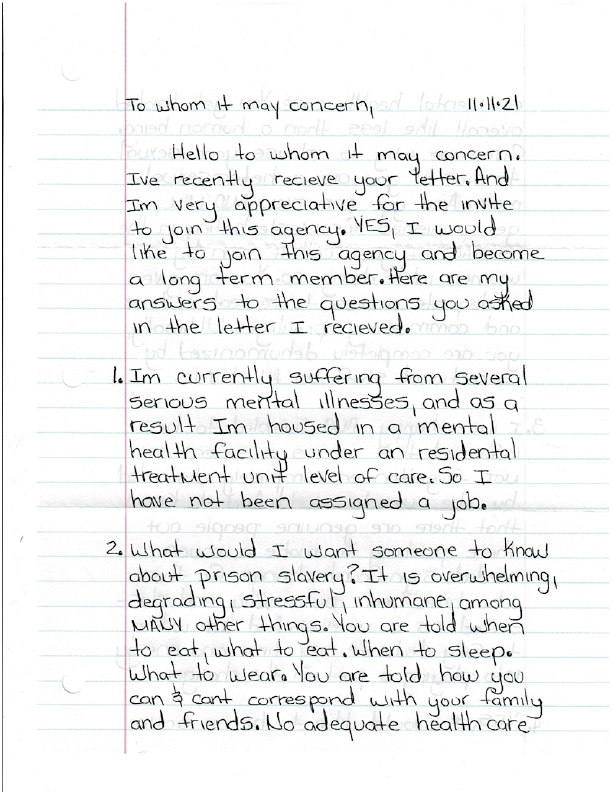 To whom it may concern, 11·11·21
Hello to whom it may concern.
Ive recently recieve your letter. And
Im very appreciative for the invite
to join this agency. YES, I would
like to join this agency and become
a long term member. Here are my
answers to the questions you asked
in the letter I recieved.
1. Im currently suffering from several
serious mental illnesses, and as a
result Im housed in a mental
health facility under an residental
treatment unit level of care. So I
have not been assigned a job.
2. What would I want someone to know
about prison slavery? It is overwhelming,
degrading, stressful, inhumane, among
MANY other things. You are told when
to eat, what to eat. When to sleep.
What to wear. You are told how you
can & cant correspond with your family
and friends. No adequate healthcare